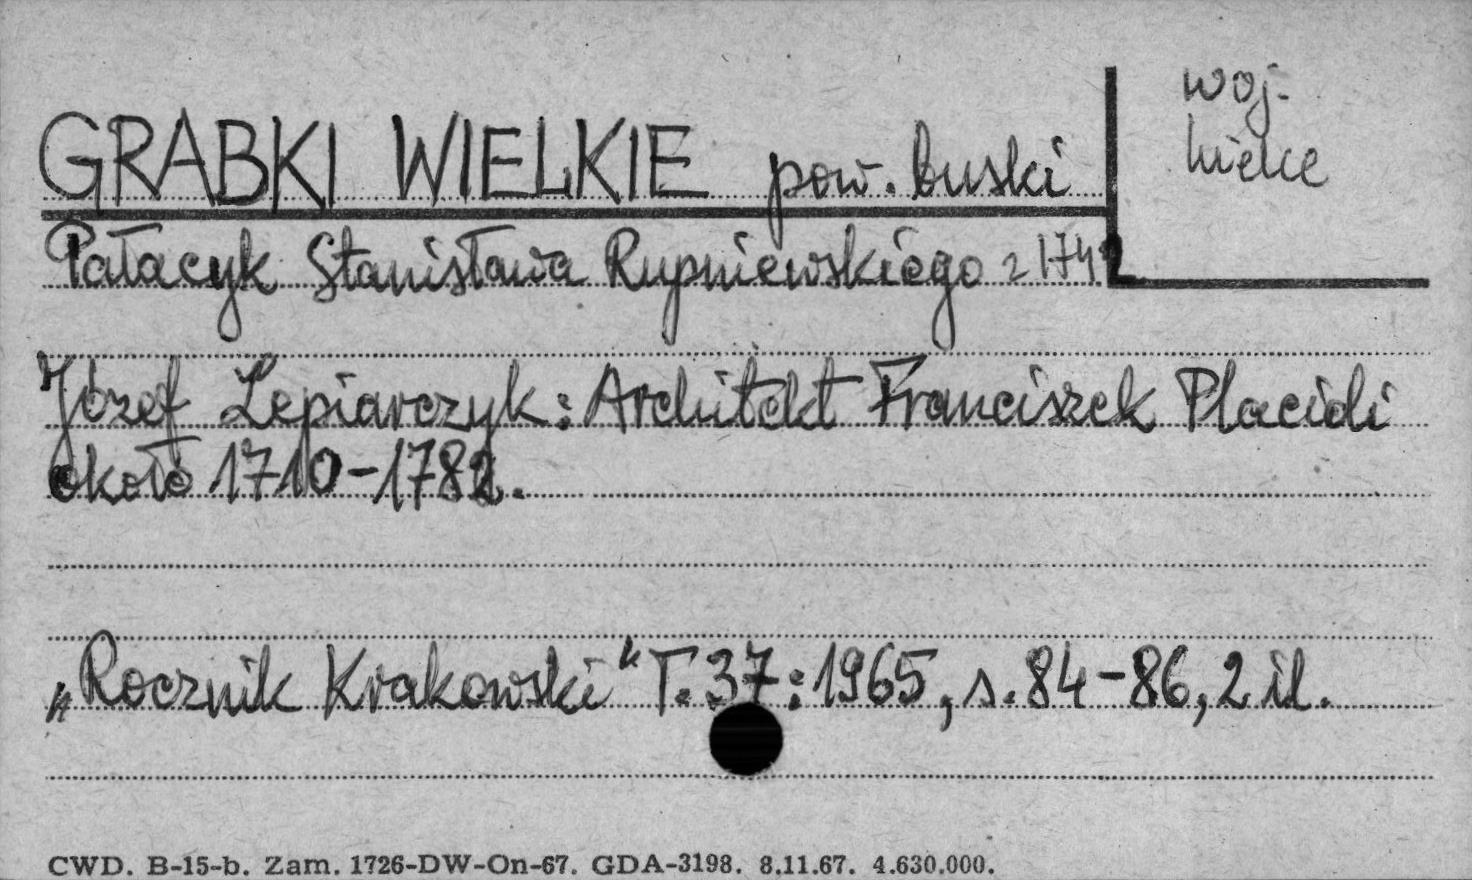 GRABKI WIELKIE pow. buski
woj.
kielce
Pałacyk Stanisława Rupniewskiego z 1742
Józef Lepiarczyk: Architekt Franciszek Placidi
około 1710-1782.
„Rocznik Krakowski" T. 37: 1965, s. 84-86, 2 il.
CWD. B-15-b. Zam. 1726-DW-On-67. GDA-3198. 8.11.67. 4.630.000.